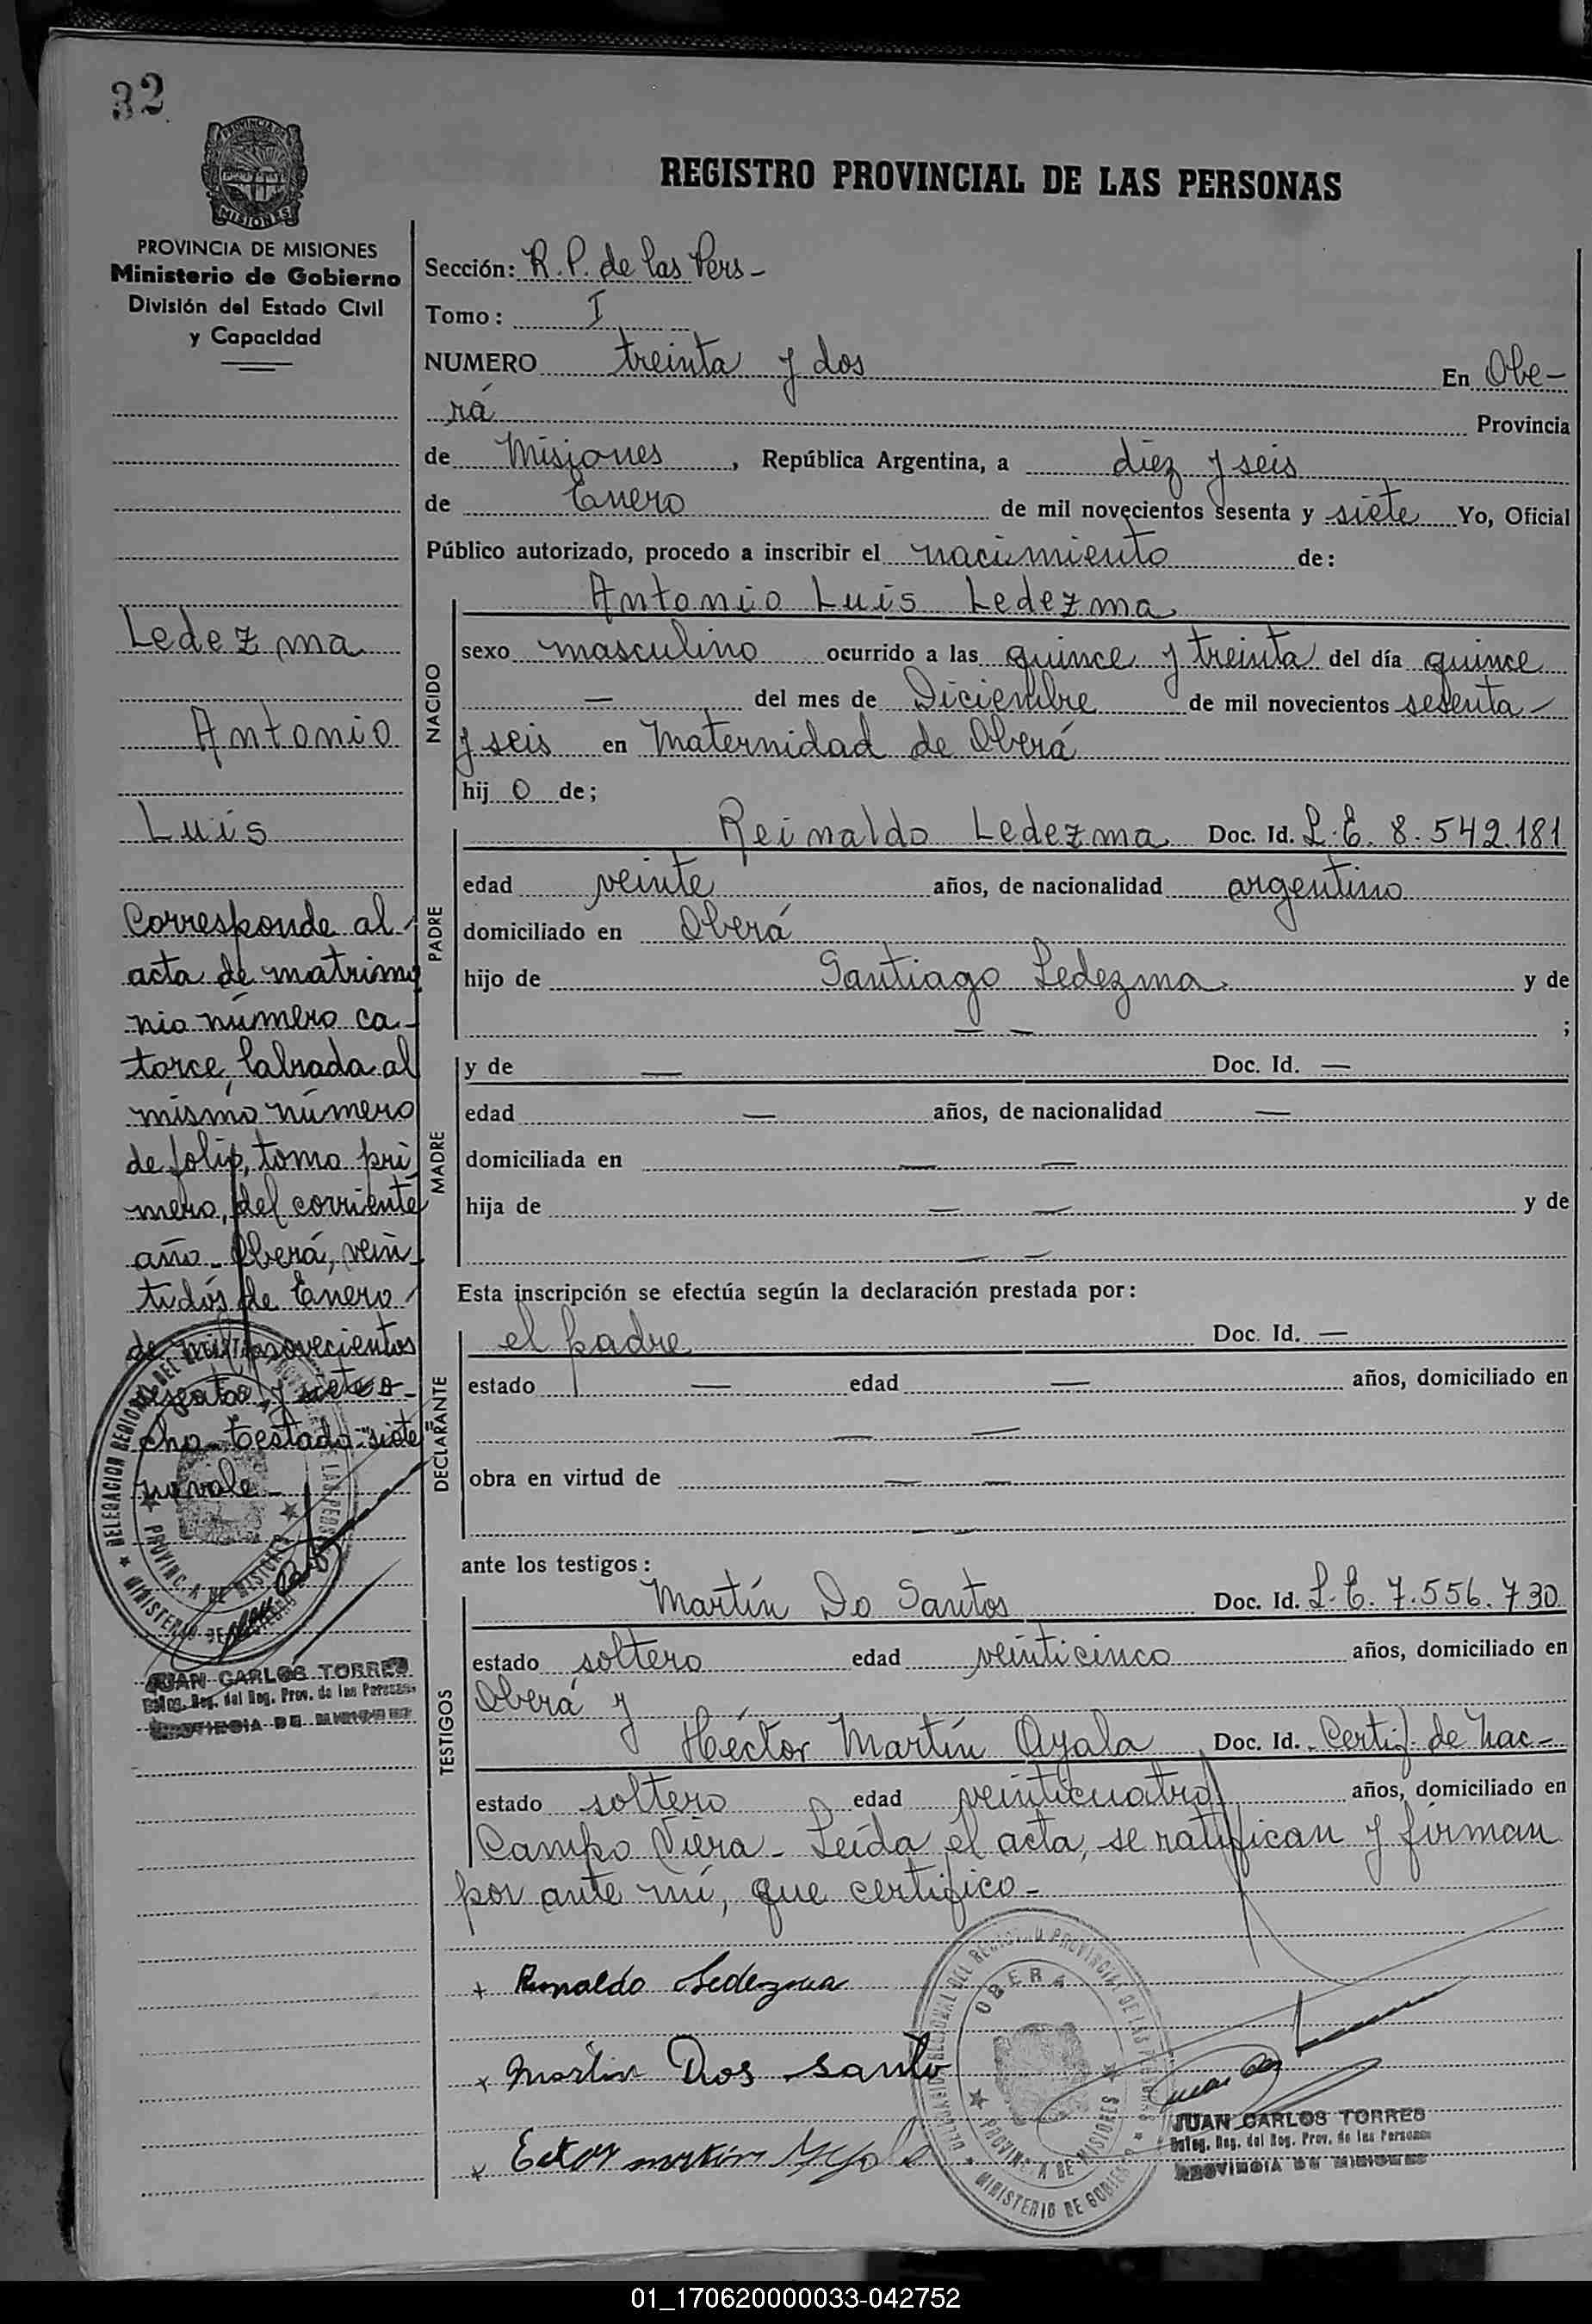 32
PROVINCIA DE MISIONES
PROVINCIA DE MISIONES
Ministerio de Gobierno
División del Estado Civil
y Capacidad
Ledezma
Antonio
Luis
Corresponde al
acta de matrimo
nio número ca-
torce, labrada al
mismo número
de folio, tomo pri
mero, del corriente
año - Oberá, vein
tidós de Enero
de mil novecientos
sesenta y siete o-
cho - Testado: "siete"
no vale -
JUAN CARLOS TORRES
Deleg. Reg. del Reg. Prov. de las Personas
PROVINCIA DE MISIONES
REGISTRO PROVINCIAL DE LAS PERSONAS
Sección: R. P. de las Pers -
Tomo: I
NUMERO treinta y dos En Obe-
rá Provincia
de Misiones, República Argentina, a diez y seis
de Enero de mil novecientos sesenta y siete Yo, Oficial
Público autorizado, procedo a inscribir el nacimiento de:
NACIDO
Antonio Luis Ledezma
sexo masculino ocurrido a las quince y treinta del día quince
— del mes de Diciembre de mil novecientos sesenta
y seis en Maternidad de Oberá
hij o de;
PADRE
Reinaldo Ledezma Doc. Id. L.E. 8.542.181
edad veinte años, de nacionalidad argentino
domiciliado en Oberá
hijo de Santiago Ledezma y de
— — ;
MADRE
y de — Doc. Id. —
edad — años, de nacionalidad —
domiciliada en — —
hija de — — y de
— —
Esta inscripción se efectúa según la declaración prestada por:
DECLARANTE
el padre Doc. Id. —
estado — edad — años, domiciliado en
— —
obra en virtud de — —
— —
ante los testigos:
TESTIGOS
Martín Do Santos Doc. Id. L.E. 7.556.730
estado soltero edad veinticinco años, domiciliado en
Oberá y
Héctor Martín Ayala Doc. Id. Certif. de Nac-
estado soltero edad veinticuatro años, domiciliado en
Campo Viera - Leída el acta, se ratifican y firman
por ante mí, que certifico -
+ Reinaldo Ledezma
x Martin Dos santo
x Ector martin Ayala
DELEGACION REGIONAL DEL REGISTRO PROVINCIAL DE LAS PERSONAS
OBERA
PROVINCIA DE MISIONES
MINISTERIO DE GOBIERNO
JUAN CARLOS TORRES
Deleg. Reg. del Reg. Prov. de las Personas
PROVINCIA DE MISIONES
01_170620000033-042752